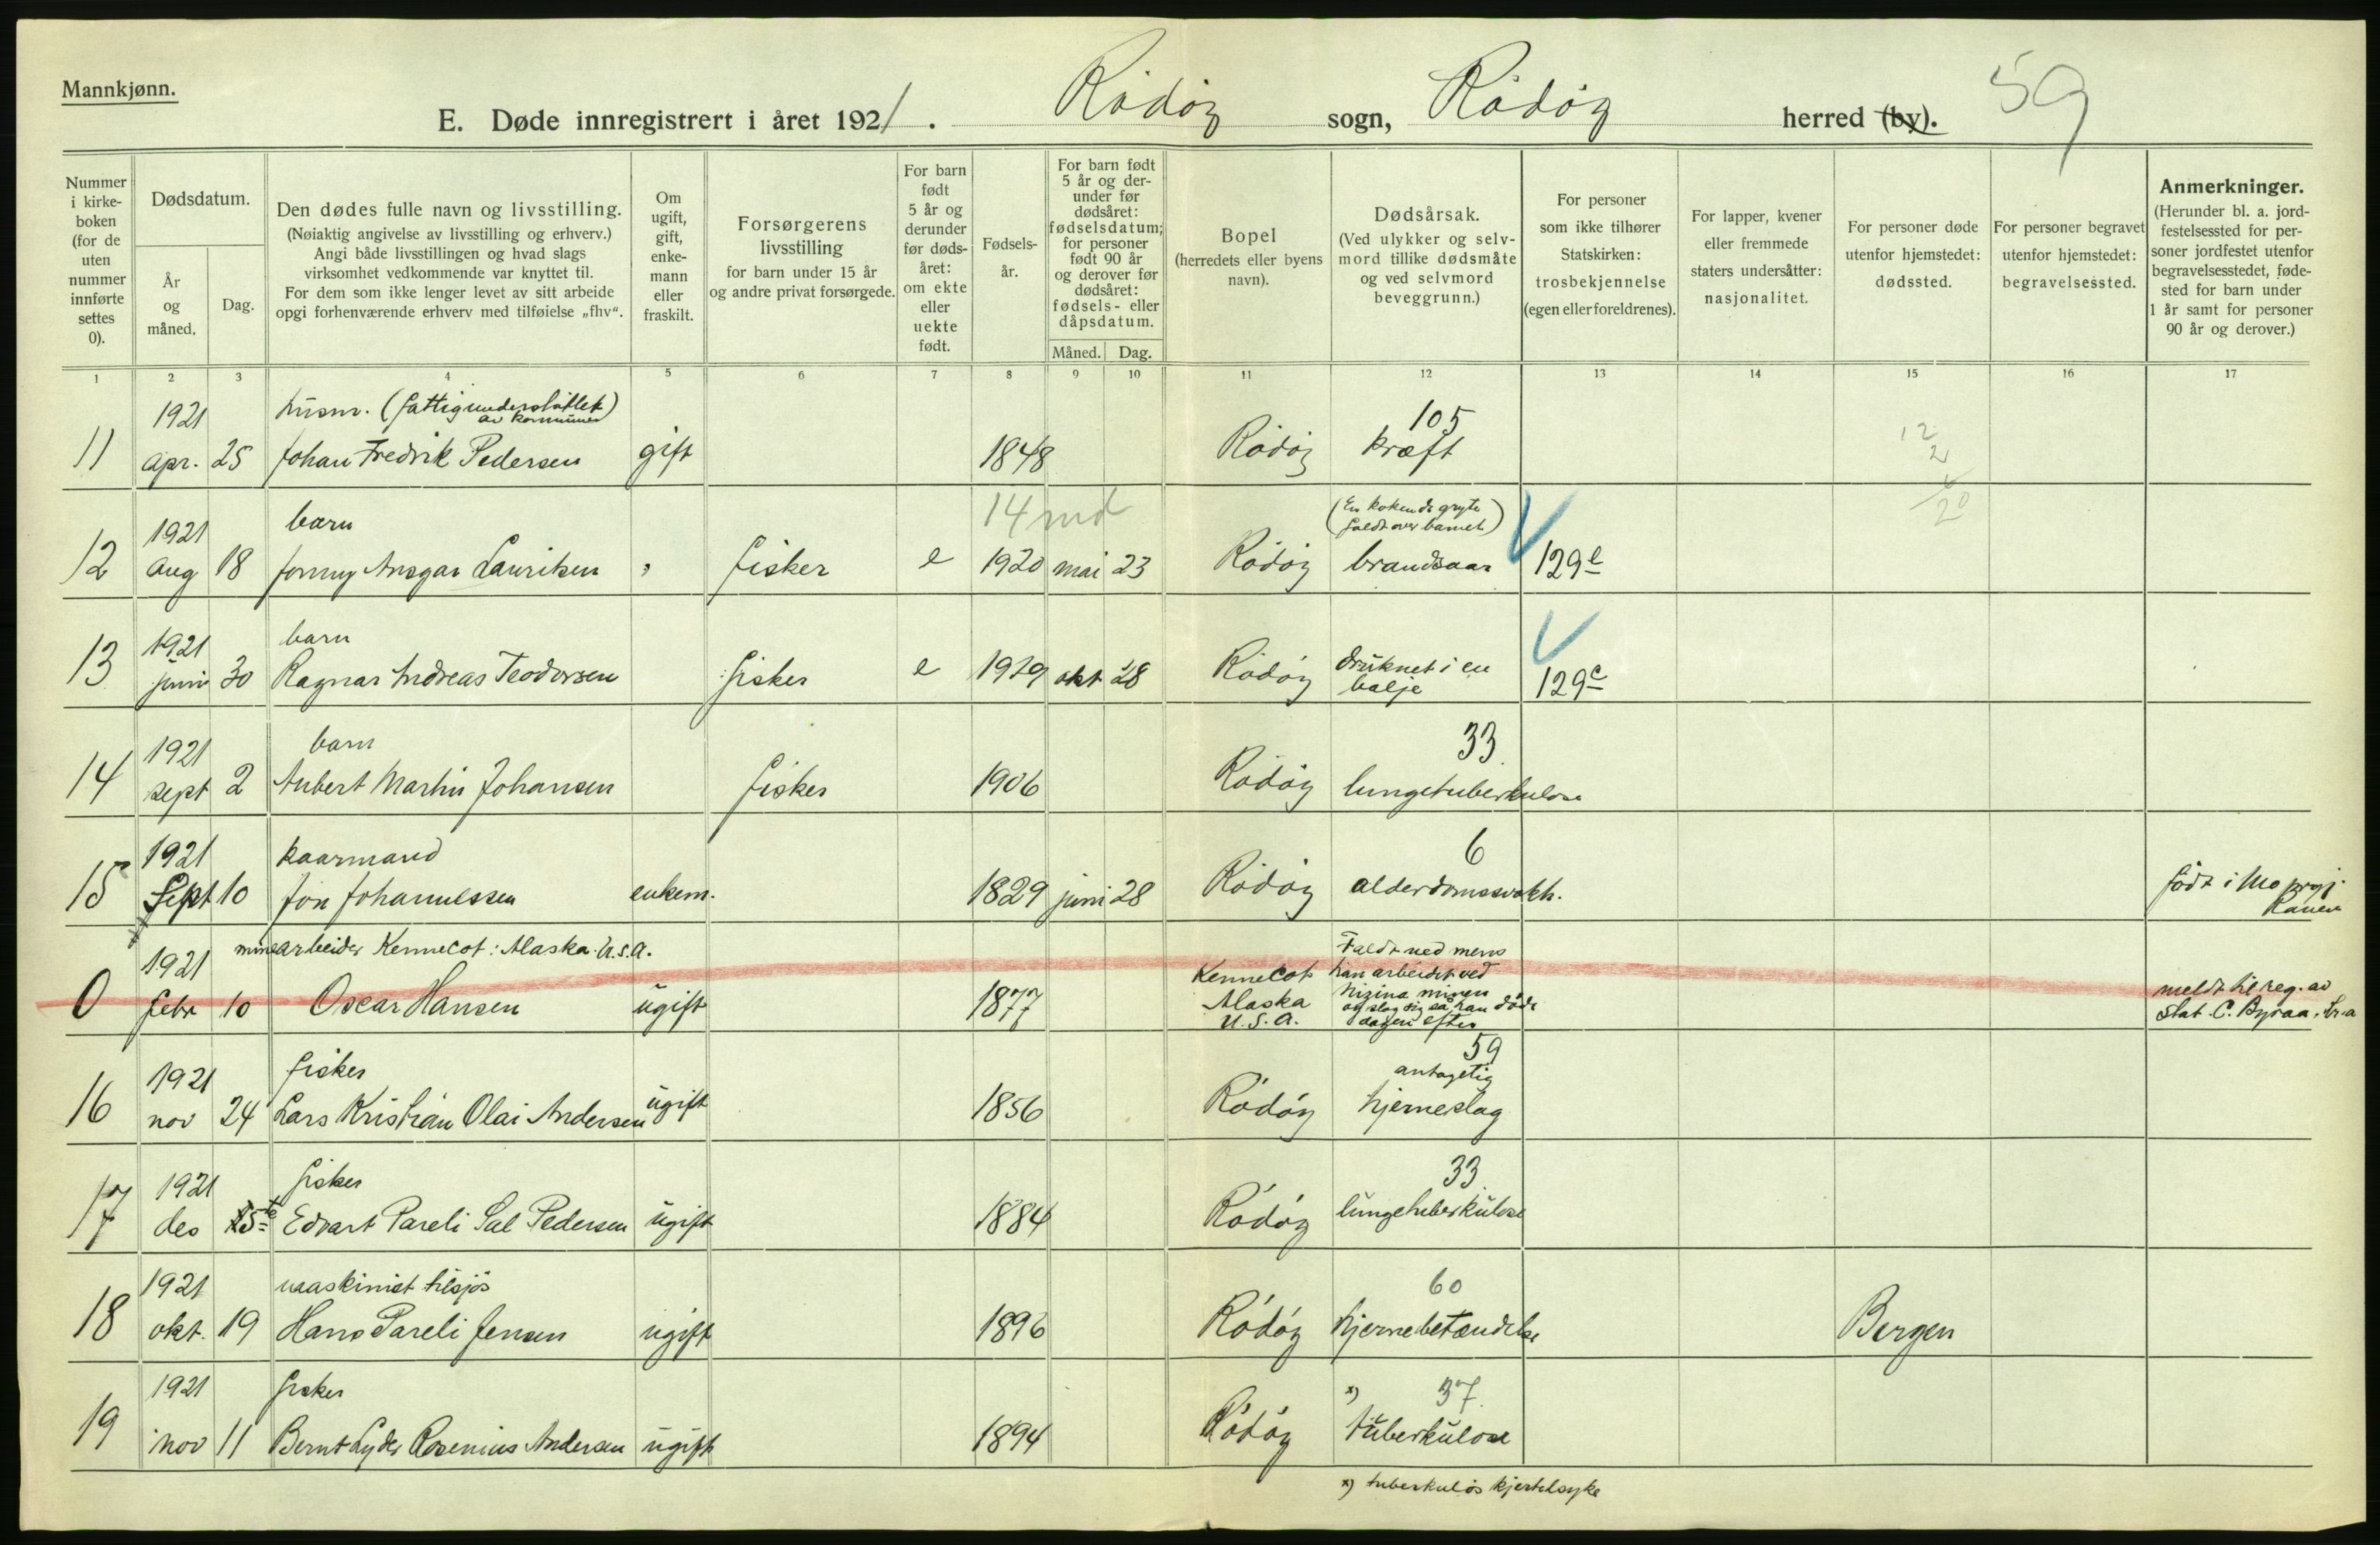 Mannkjønn.
E. Døde innregistrert i året 1921. Rödöy sogn, Rödöy herred (by). 59
Nummer i kirke-boken (for de uten nummer innførte settes 0).
Dødsdatum.
År og måned.
Dag.
Den dødes fulle navn og livsstilling.
(Nøiaktig angivelse av livsstilling og erhverv.)
Angi både livsstillingen og hvad slags
virksomhet vedkommende var knyttet til.
For dem som ikke lenger levet av sitt arbeide
opgi forhenværende erhverv med tilføielse „fhv“.
Om ugift, gift, enke-mann eller fraskilt.
Forsørgerens livsstilling
for barn under 15 år
og andre privat forsørgede.
For barn født 5 år og derunder før døds-året: om ekte eller uekte født.
Fødsels-år.
For barn født 5 år og der-under før dødsåret: fødselsdatum; for personer født 90 år og derover før dødsåret: fødsels- eller dåpsdatum.
Måned. Dag.
Bopel
(herredets eller byens navn).
Dødsårsak.
(Ved ulykker og selv-mord tillike dødsmåte og ved selvmord beveggrunn.)
For personer som ikke tilhører Statskirken: trosbekjennelse (egen eller foreldrenes).
For lapper, kvener eller fremmede staters undersåtter: nasjonalitet.
For personer døde utenfor hjemstedet: dødssted.
For personer begravet utenfor hjemstedet: begravelsessted.
Anmerkninger.
(Herunder bl. a. jord-festelsessted for per-soner jordfestet utenfor begravelsesstedet, føde-sted for barn under 1 år samt for personer 90 år og derover.)
1 2 3 4 5 6 7 8 9 10 11 12 13 14 15 16 17
1921 husm. (fattigunderstöttet av kommunen) 105 12 2
11 apr. 25 Johan Fredrik Pedersen gift 1848 Rödöy kræft 20
14 md (En kokende gryte faldt over barnet)
1921 barn
12 Aug 18 Jonny Ansgar Lauritsen " fisker e 1920 mai 23 Rödöy brandsaar 129e
1921 barn
13 juni 30 Ragnar Andreas Teodorsen fisker e 1919 okt 28 Rödöy druknet i en balje 129c
1921 barn 33
14 sept 2 Aubert Martin Johansen fisker 1906 Rödöy lungetuberkulose
1921 kaarmand 6
15 Sept 10 Jon Johannessen enkem. 1829 juni 28 Rödöy alderdomssvakh. född i Mo prgj. Ranen
1921 minearbeider Kennecot: Alaska. U.S.A.
0 febr 10 Oscar Hansen ugift 1877 Kennecot Alaska U.S.A. Faldt ned mens han arbeidet ved Nizina minen og slog sig så han döde dagen efter meldt til reg. av Stat. C. Byraa.
1921 fisker 59
16 nov 24 Lars Kristian Olai Andersen ugift 1856 Rödöy antagelig hjerneslag
1921 fisker 33
17 des 15te Edvart Pareli Sal Pedersen ugift 1884 Rödöy lungetuberkulose
1921 maskinist tilsjös 60
18 okt. 19 Hans Pareli Jensen ugift 1896 Rödöy hjernebetændelse Bergen
1921 fisker x) 37
19 nov 11 Bernt Lyder Rosenius Andersen ugift 1894 Rödöy tuberkulose
x) tuberkulös kjertelsyke